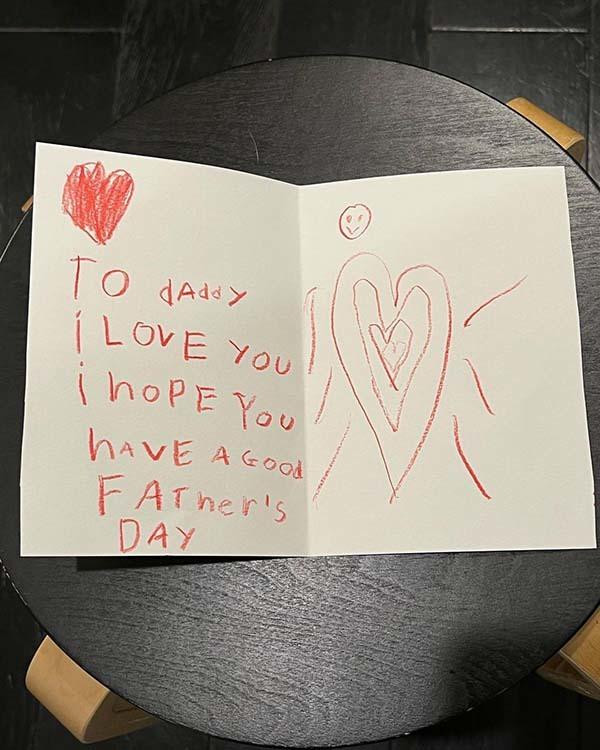 To dAddy
i LOVE YOU
i hoPE You
hAVE A Good
FATher's
DAY